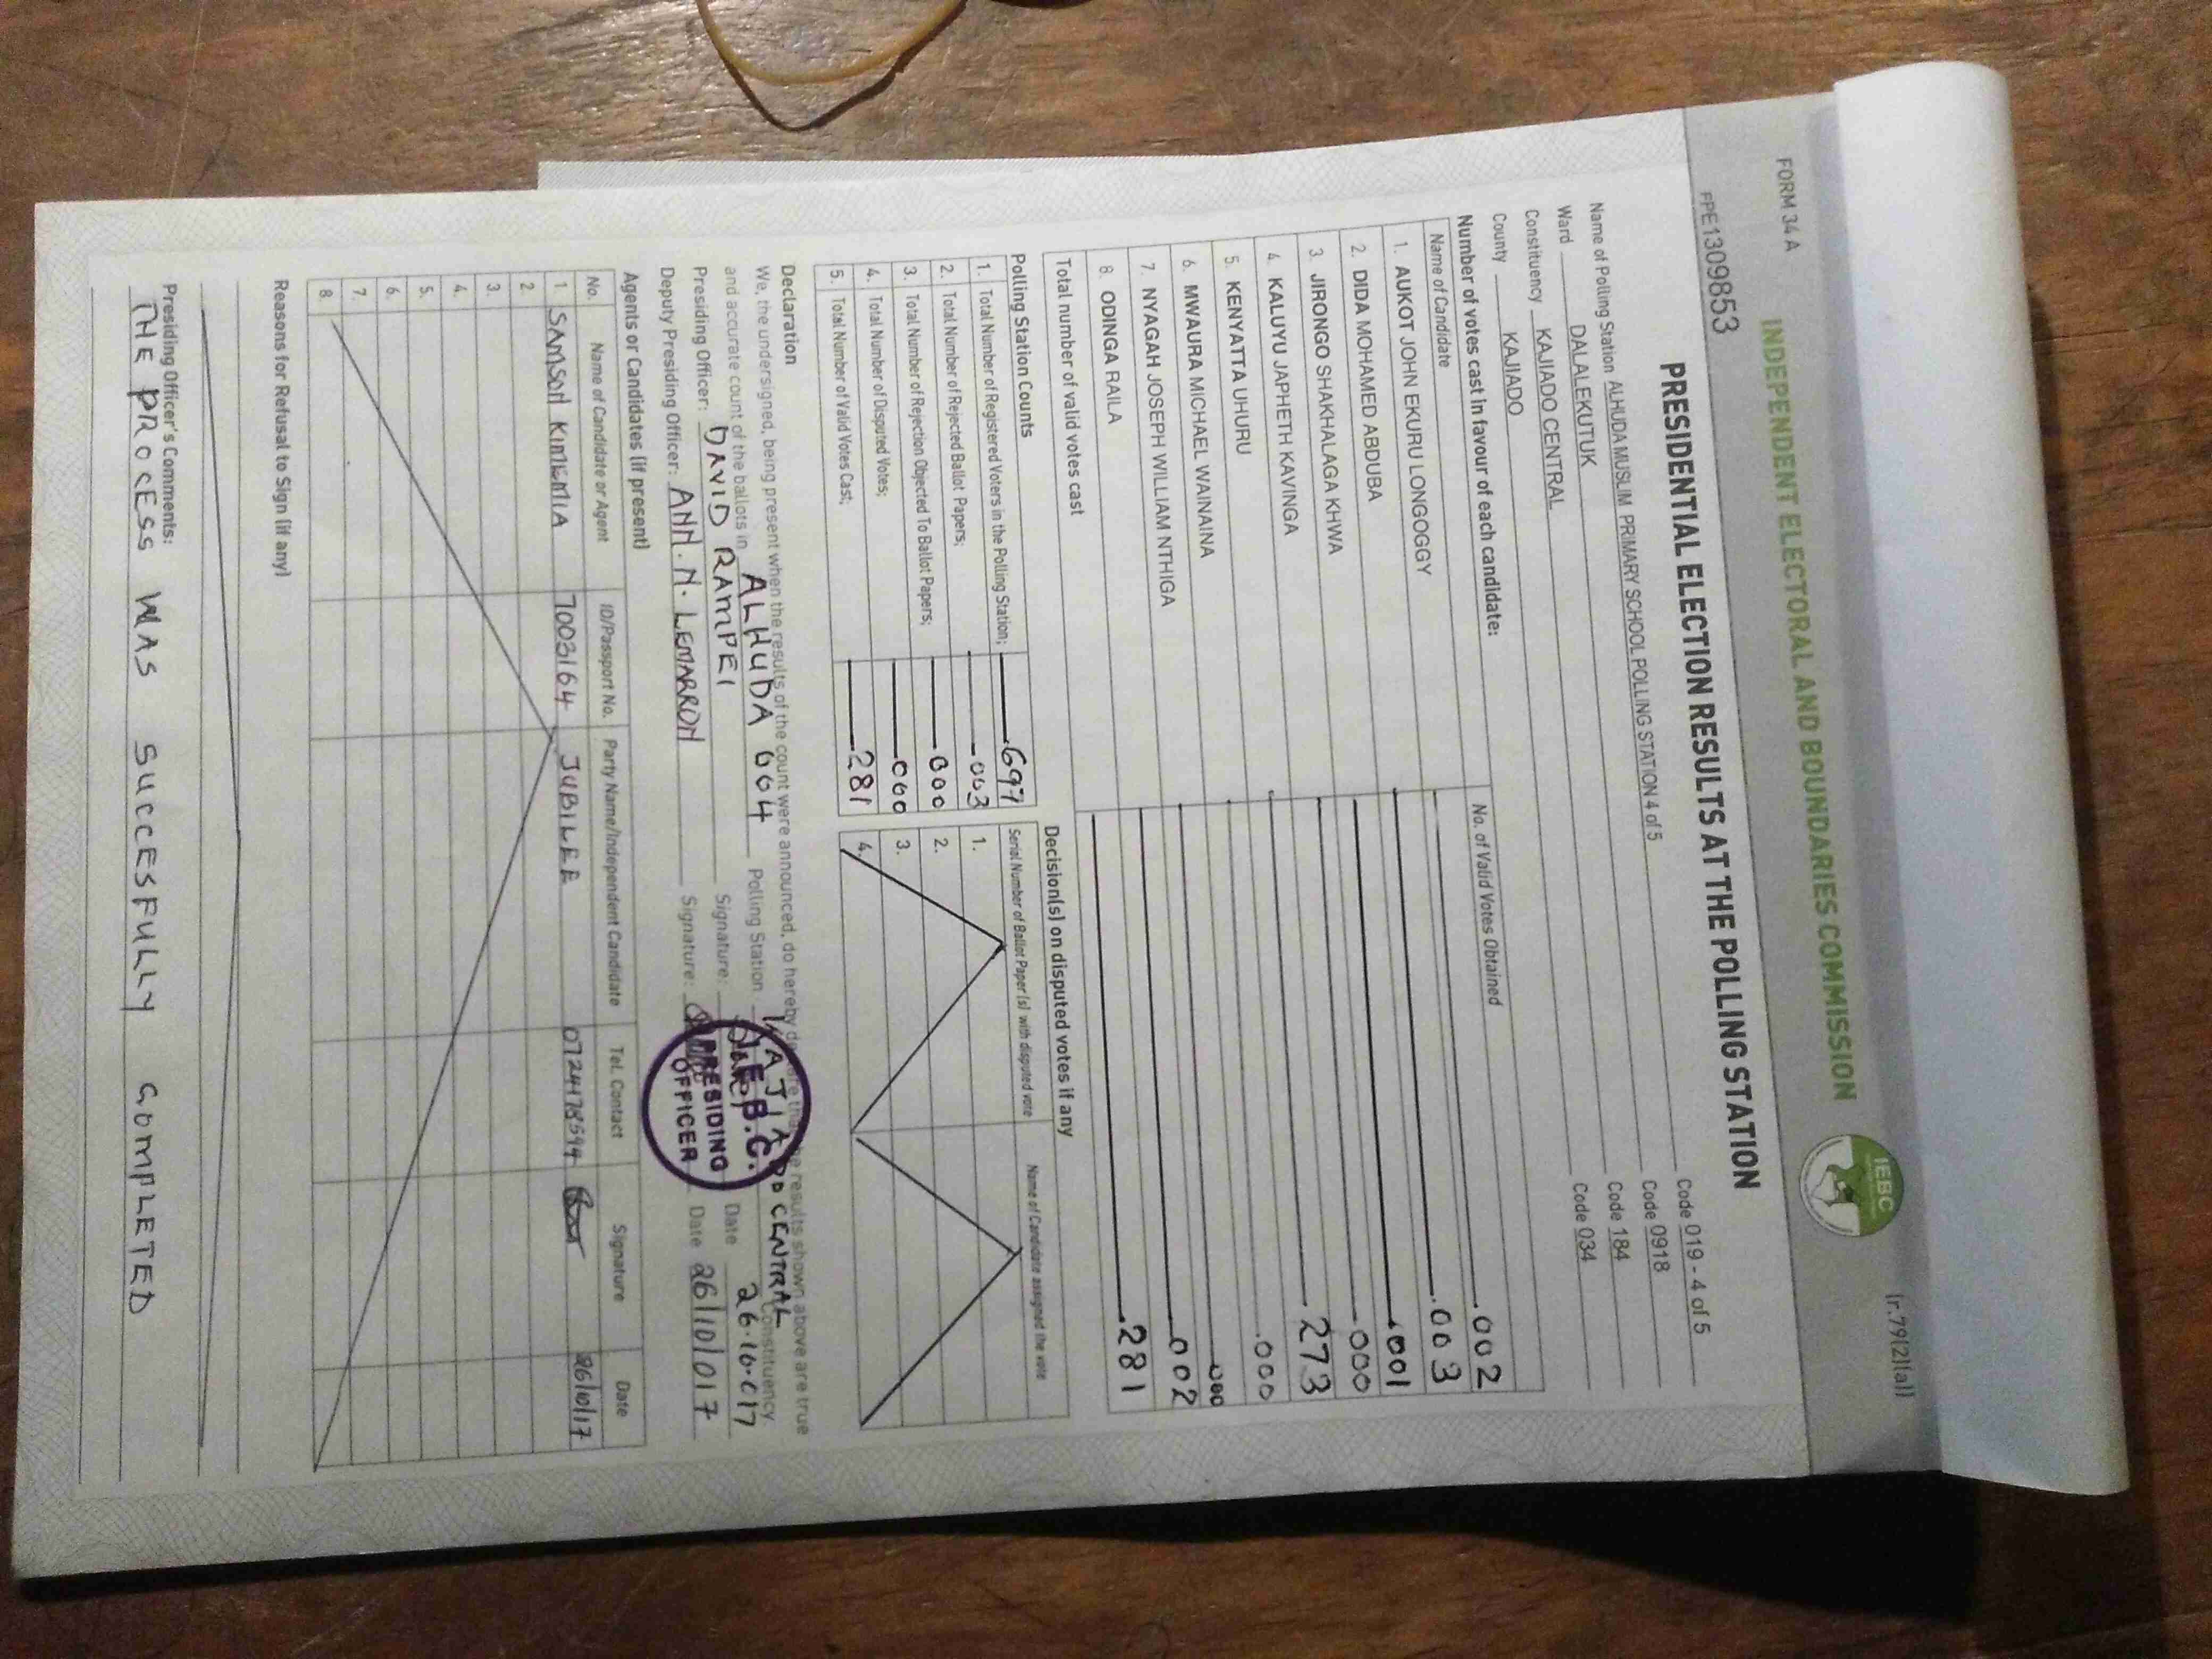 FORM 34 A
(r.79(2)(a))
INDEPENDENT ELECTORAL AND BOUNDARIES COMMISSION
IEBC
PPE1309853
PRESIDENTIAL ELECTION RESULTS AT THE POLLING STATION
Name of Polling Station ALHUDA MUSLIM PRIMARY SCHOOL POLLING STATION 4 of 5 Code 019 - 4 of 5
Ward DALALEKUTUK Code 0918
Constituency KAJIADO CENTRAL Code 184
County KAJIADO Code 034
Number of votes cast in favour of each candidate:
Name of Candidate No. of Valid Votes Obtained
1. AUKOT JOHN EKURU LONGOGGY 002
2. DIDA MOHAMED ABDUBA 003
3. JIRONGO SHAKHALAGA KHWA 001
4. KALUYU JAPHETH KAVINGA 000
5. KENYATTA UHURU 273
6. MWAURA MICHAEL WAINAINA 000
7. NYAGAH JOSEPH WILLIAM NTHIGA 000
8. ODINGA RAILA 002
Total number of valid votes cast 281
Polling Station Counts
1. Total Number of Registered Voters in the Polling Station; 697
2. Total Number of Rejected Ballot Papers; 003
3. Total Number of Rejection Objected To Ballot Papers; 000
4. Total Number of Disputed Votes; 000
5. Total Number of Valid Votes Cast; 281
Decision(s) on disputed votes if any
Serial Number of Ballot Paper(s) with disputed vote Name of Candidate assigned the vote
1.
2.
3.
4.
Declaration
We, the undersigned, being present when the results of the count were announced, do hereby declare that the results shown above are true
and accurate count of the ballots in ALHUDA 004 Polling Station KAJIADO CENTRAL Constituency
Presiding Officer: DAVID RAMPEI Signature: Date 26.10.017
Deputy Presiding Officer: ANN. N. LEMARRON Signature: Date 26/10/017
I.E.B.C.
PRESIDING
OFFICER
Agents or Candidates (if present)
No. Name of Candidate or Agent ID/Passport No. Party Name/Independent Candidate Tel. Contact Signature Date
1. SAMSON KIMEMIA 7003164 JUBILEE 0724478594 26/10/17
2.
3.
4.
5.
6.
7.
8.
Reasons for Refusal to Sign (if any)
Presiding Officer's Comments:
THE PROCESS WAS SUCCESFULLY COMPLETED